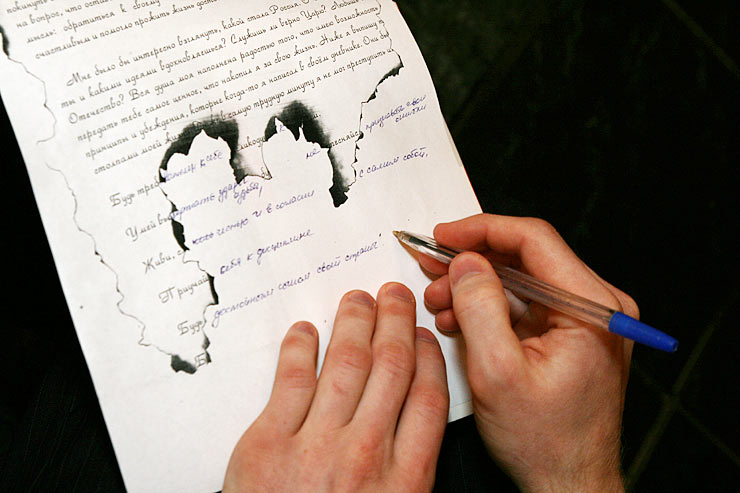 покинуть
на вопрос, что остав
мысль: обратиться к своему
счастливым и помогло прожить жизнь дост
Мне было бы интересно взглянуть, какой стала Россия.
ты и какими идеями вдохновляешься? Служишь ли верно Царю? Любишь
Отечество? Вся душа моя наполнена радостью того, что имею возможность
передать тебе самое ценное, что накопил я за свою жизнь. Ниже я выпишу т
принципы и убеждения, которые когда-то я написал в своей дневнике. Они бы
столпами моей жиз самую трудную минуту я не мог преступить и
Будь требо к себе не стесняйся признавай свои ошибки
Умей вы удары судьбы,
Живи, с честью и в согласии с самим собой,
Приучай себя к дисциплине
Будь достойным сыном своей страны".
Б